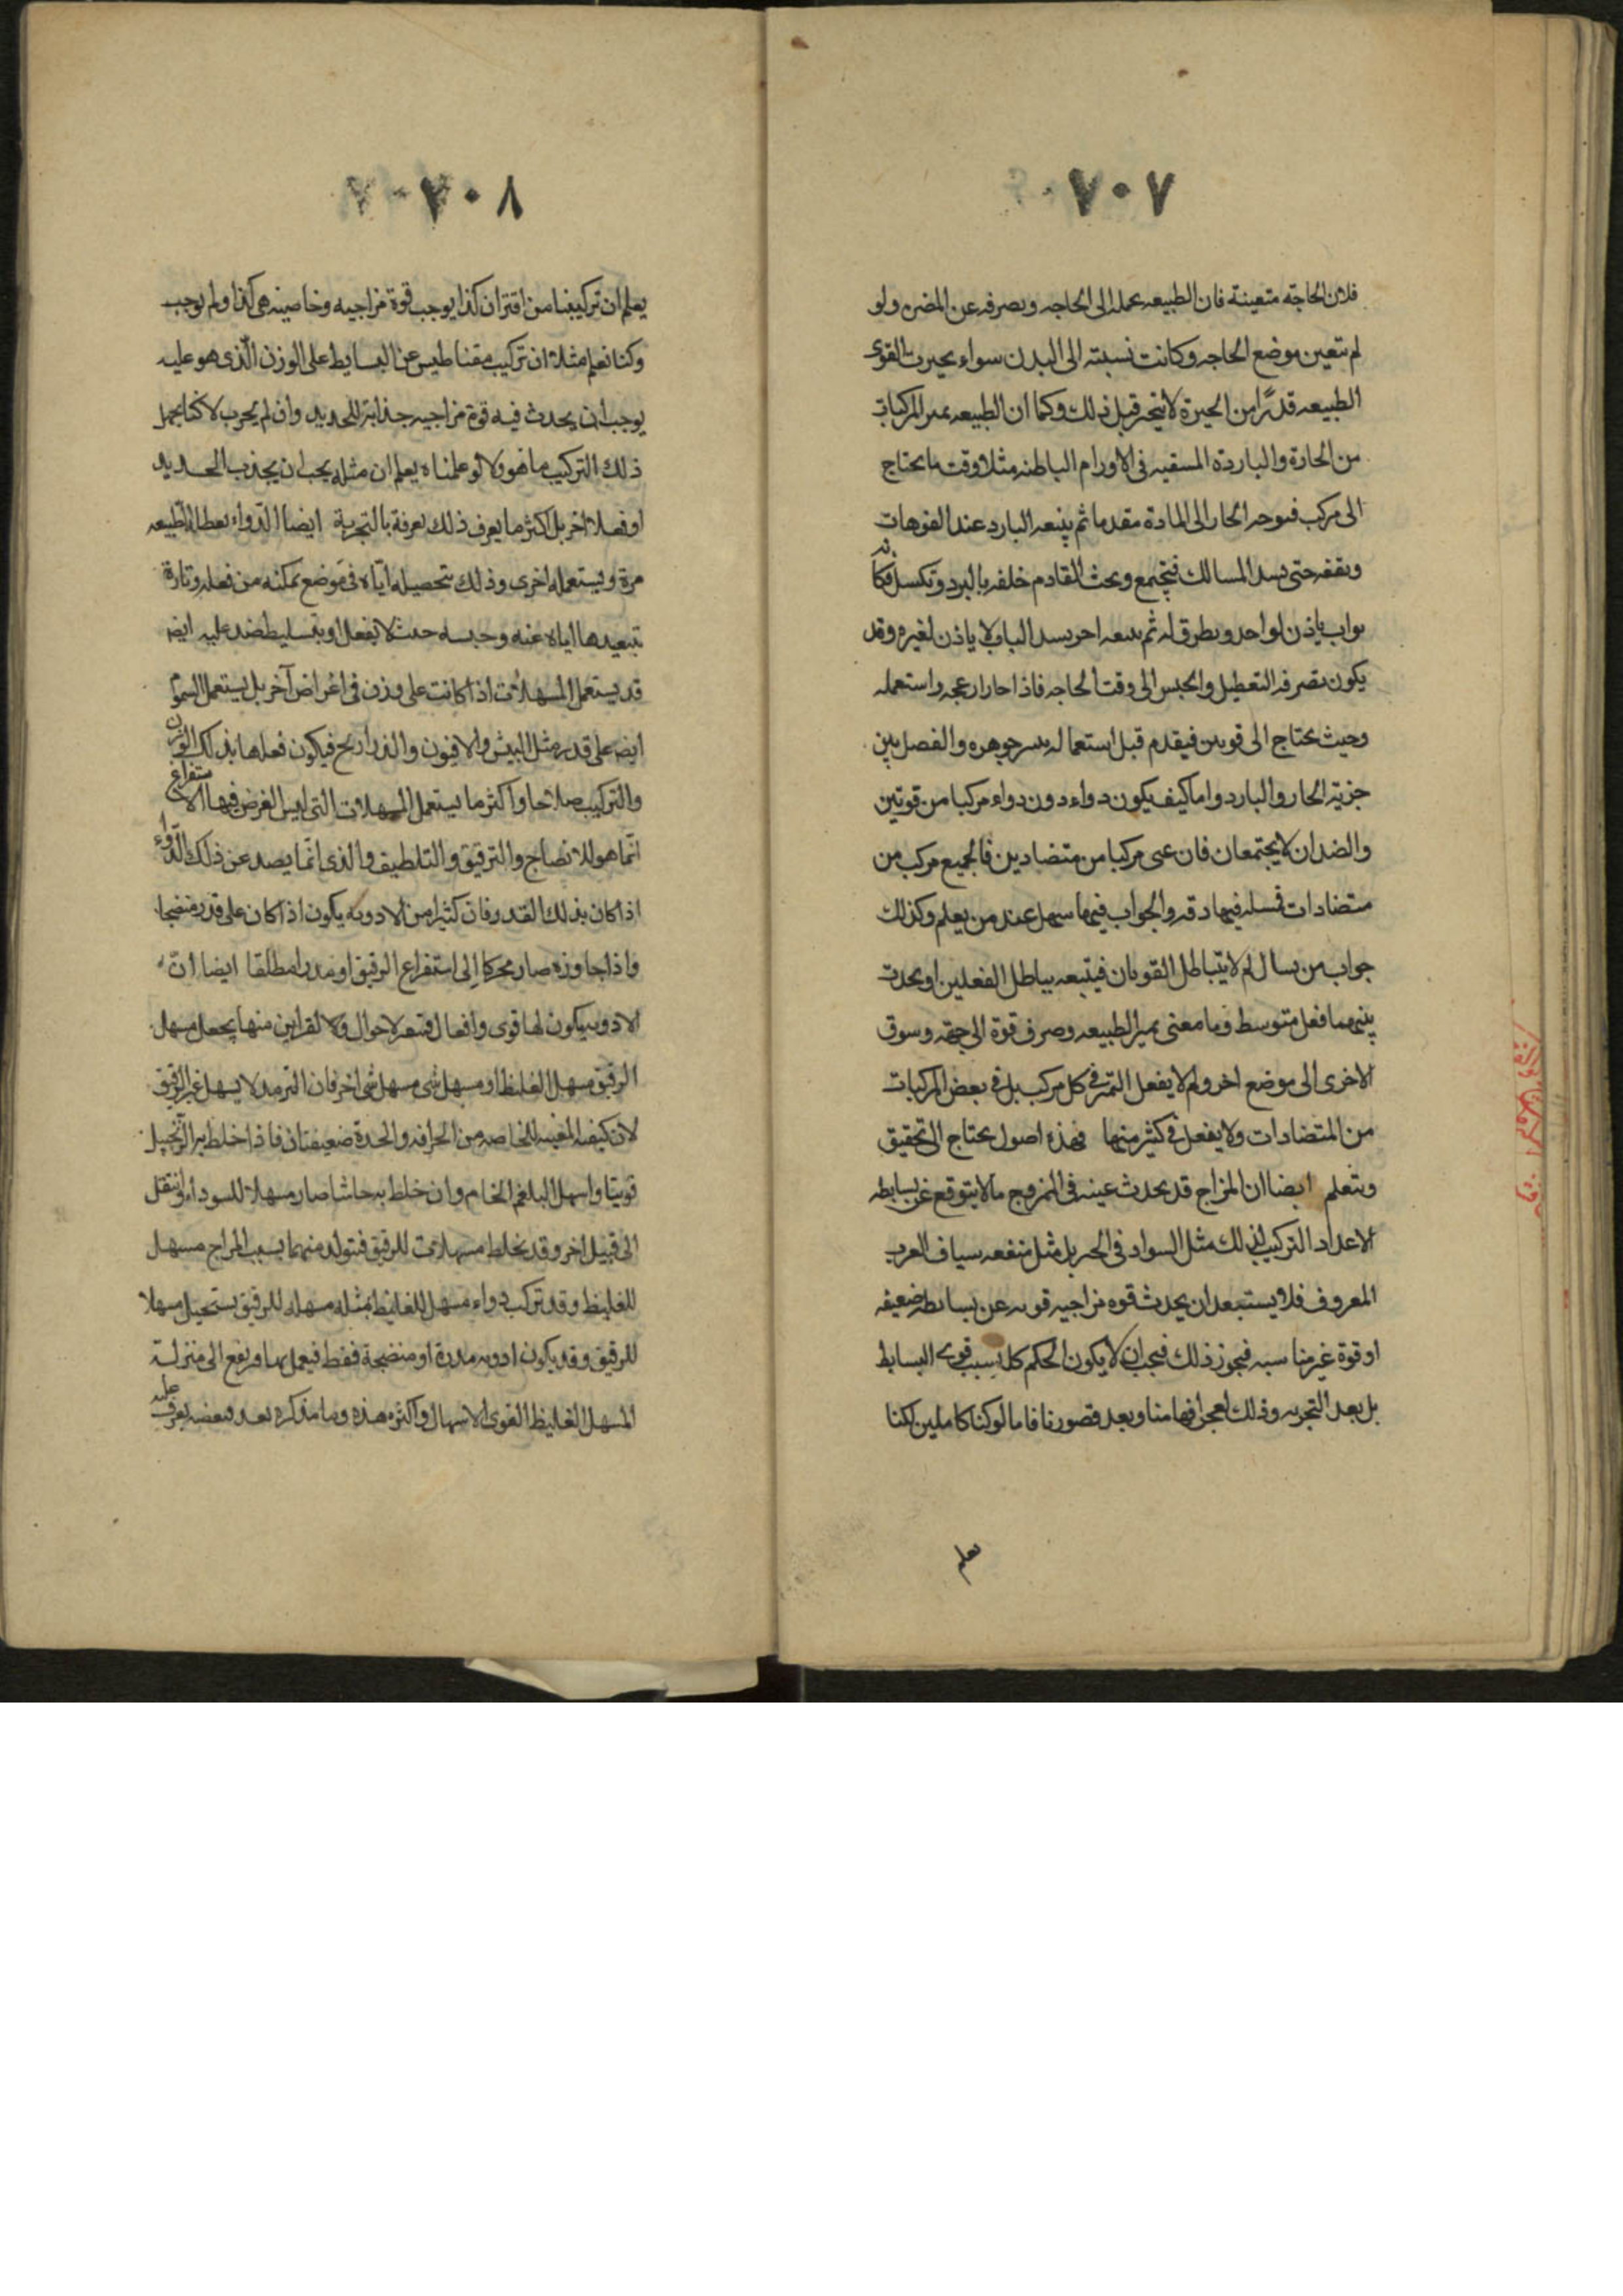 ٧٠٧
فلان الحاجة متعينة فان الطبيعه عمله الى الحاجه وبصرفه عن المضره ولو
لم تتعين موضع الحاجه وكانت نسبته الى البدن سواء تحيرت القوى
الطبيعه قدرًا من الحيرة لا يتحير قبل ذلك وكما ان الطبيعه يميز المركبات
من الحارة والباردة المسقيه فى الاورام الباطنه مثلا وقت ما يحتاج
الى مركب فتوجه الحار الى المادة مقدما ثم يتبعه البارد عند الفوهات
وبقفه حتى يسد المسالك فيجتمع القادم خلفه بالبرد وتكسل فكأنه
بواب ياذن لواحد ويطرق له ثم يتبعه اخر يسد الباب ولا ياذن لغيره وقد
يكون تصرفه التعطيل والحبس الى وقت الحاجه فاذا واستعمله
وحيث يحتاج الى قوتين فيقدم قبل استعماله جوهره والفصل بين
جزئية الحار والبارد واما كيف يكون دواء دون دواء مركبا من قوتين
والضدان لا يجتمعان فان عنى مركبا من متضادين فالجميع مركب من
متضادات فمسله فيها دقه والجواب فيها سهل عند من يعلم وكذلك
جواب من يسال لم لا يتباطل القوتان فيتبعه بباطل الفعلين او يحدث
بينهما فعل متوسط وما معنى تميز الطبيعه وصرف قوة الى جهة وسوق
الاخرى الى موضع اخر ولم لا يفعل التميز فى كل مركب بل فى بعض المركبات
من المتضادات ولا يفعل فى كثير منها فهذه اصول يحتاج الى تحقيق
وتعلم ايضا ان المزاج قد يحدث عينه فى الممزوج ما لا يتوقع عن بسايطه
لاعداد التركيب لذلك مثل السواد فى الحبر بل مثل منفعه سياف العرب
المعروف فلا يستبعد ان يحدث قوه مزاجيه قويه عن بسايط ضعيفه
او قوة غير مناسبه فيجوز ذلك فيجب ان لا يكون الحكم كل بسبب قوى البسايط
بل بعد التجربه وذلك لعجز افهامنا وبعد قصورنا فاما لو كنا كاملين لكنا
نعلم
٧٠٨
يعلم ان تركيبنا من اقتران كذا يوجب قوة مزاجيه وخاصيته هى كذا ولم توجب
وكنا نعلم مثلا ان تركيب مقناطيس عن البسايط على الوزن الّذى هو عليه
يوجب ان يحدث فيه قوة مزاجيه جذابة للحديد وان لم يجرب لاكنا نجهل
ذلك التركيب ما هو ولا لو علمناه يعلم ان مثله يجب ان يجذب الحديد
او فعلا اخر بل اكثر ما يعرف ذلك نعرفة بالتجربة ايضا الدواء يعطله الطبيعه
مرة ويستعمله اخرى وذلك بتحصيله ايّاه فى موضع تمكنه من فعله وتارة
تبعيدها اياه عنه وحبسه حيث لا يفعل او بتسليط ضد عليه ايضا
قد يستعمل المسهلات اذا كانت على وزن فى اغراض آخر بل يستعمل السموم
ايضا على قدر مثل البيش والافيون والذراريح فيكون فعلها بذلك الوزن
والتركيب صلاحا واكثر ما يستعمل المسهلات التى ليس الغرض فيها الاستفراغ
انّما هو للانضاج والترقيق والتلطيف والذى انّما يصد عن ذلك الدّواء
اذا كان بذلك القدر فان كثيرا من الادوية يكون اذا كان على قدر منضجا
واذا جاوزه صار محركا الى استفراغ الرقيق او مدرا مطلقا ايضا انّ
الادويه يكون لها قوى وافعال فتتغير لاحوال ولا لقراين منها يجعل مسهل
الرقيق مسهل الغليظ او مسهل شى مسهل شى اخر فان التربد لا يسهل غير الرقيق
لان كيفيه المغيبه للخاصه من الحرافه والحدة ضعيفتان فاذا خلط به الزنجبيل
قويتا واسهل البلغم الخام وان خلط به حاشا صار مسهلا للسوداء وانتقل
الى قبيل اخر وقد يخلط مسهلات للرقيق فتولد منهما بسبب المزاج مسهل
للغليظ وقد تركب دواء مسهل للغليظ بمثله مسهله للرقيق يستحيل مسهلا
للرقيق وقد يكون ادويه مدرة او منضجة فقط فيعمل بها فرتفع الى منزلة
المسهل الغليظ القوى الاسهال واكثره هذه وما نذكره بعد فبعضه يعرف عليه